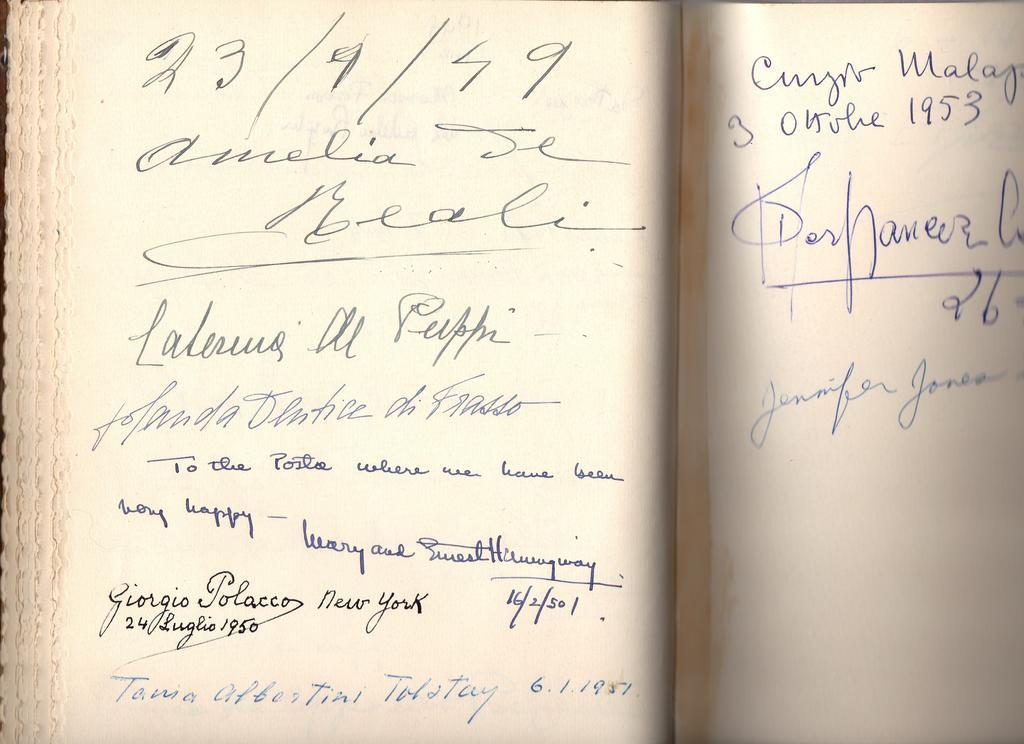 23/9/49
Amelia De
Reali
Caterina de Puppi
Jolanda Dentice di Frasso
To the Posta where we have been
very happy —
Mary and Ernest Hemingway
16/2/50
Giorgio Polacco New York
24 Luglio 1950
Tania Albertini Tolstoy 6.1.1951.
3 Ottobre 1953
26
Jennifer Jones